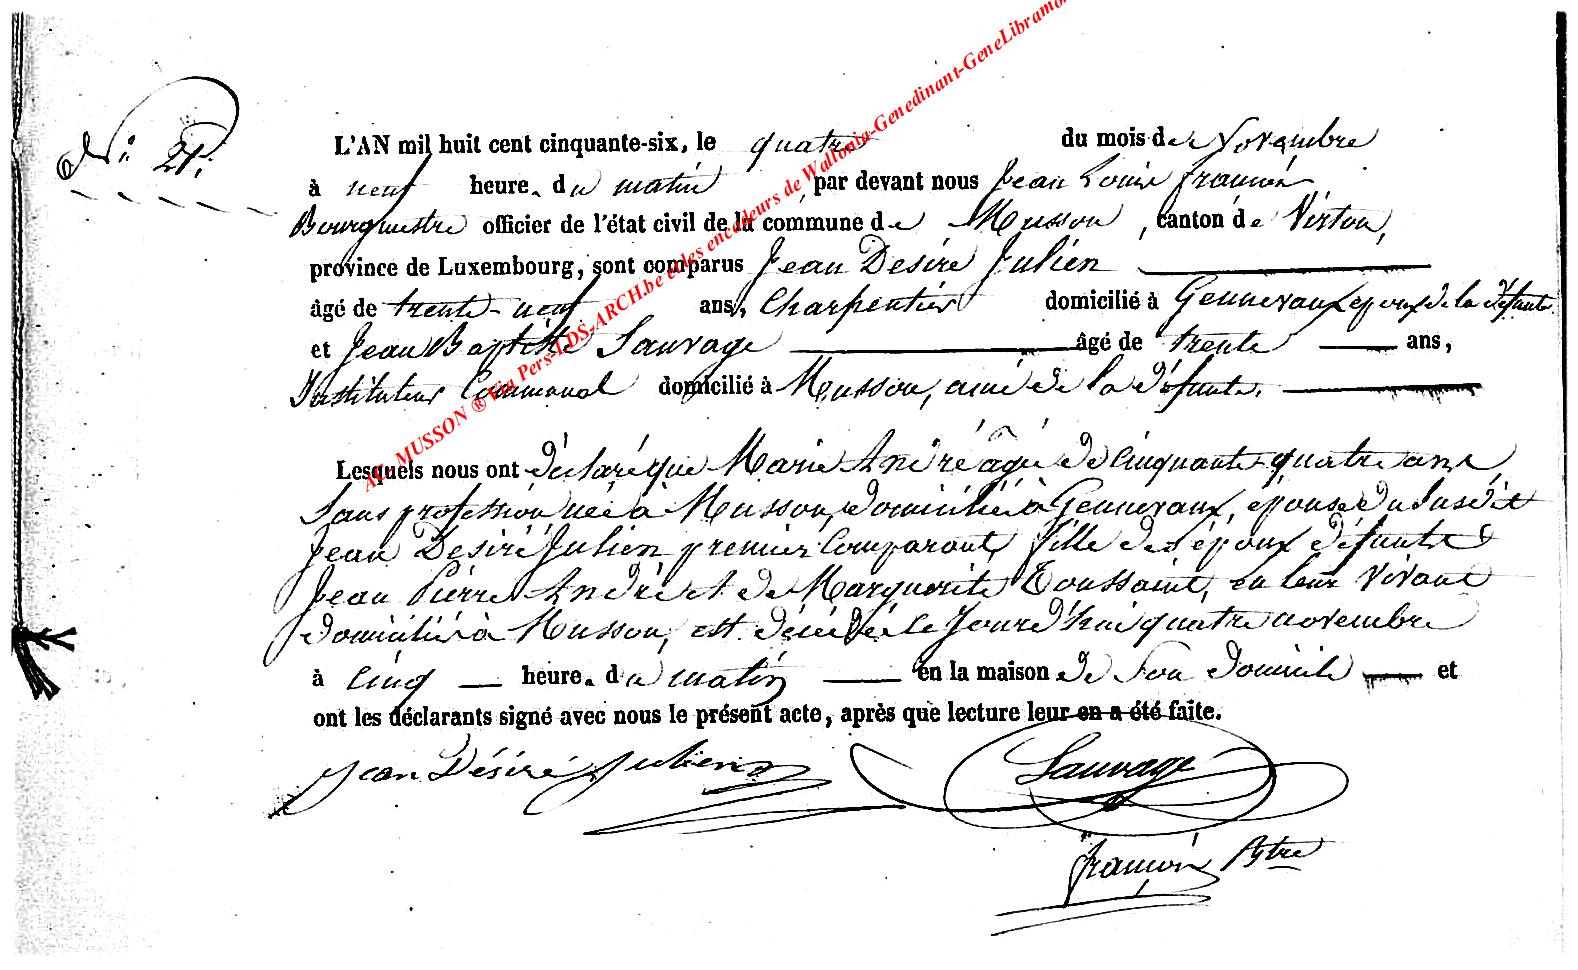 N°: 21:
L'AN mil huit cent cinquante-six, le quatre du mois de Novembre
à neuf heure. du matin par devant nous Jean Louis
Bourgmestre officier de l'état civil de la commune de Musson, canton de Virton,
province de Luxembourg, sont comparus Jean Désiré Julien
âgé de trente-neuf ans, Charpentier domicilié à Gennevaux epoux de la défunte
et Jean Baptiste Sauvage âgé de trente ans,
Instituteur Communal domicilié à Musson, ami de la défunte.
Lesquels nous ont déclaré que Marie André âgée de Cinquante-quatre ans
Sans profession née à Musson, domiciliée à Gennevaux, épouse du Susdit
Jean Désiré Julien premier Comparant, fille des époux défunts
Jean Pierre André et de Marguerite Toussaint, en leur vivant
domiciliés à Musson, est décédée le Jourd'hui quatre novembre
à Cinq heure. du matin en la maison de Son domicile et
ont les déclarants signé avec nous le présent acte, après que lecture leur en a été faite.
Jean Désiré Julien Sauvage
AC MUSSON ® Via Pers-LDS-ARCH.be et les encodeurs de Wallonia-Genedinant-GeneLibramo